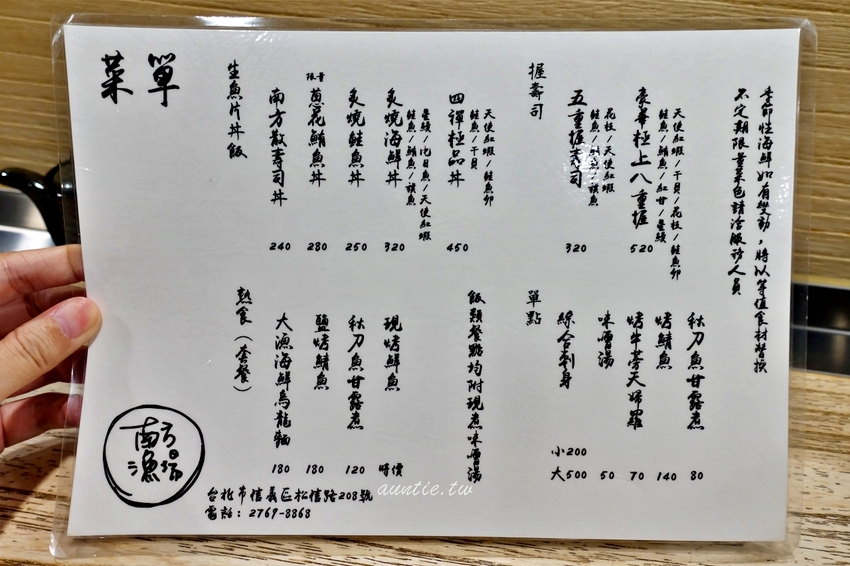 菜單
生魚片丼飯
南方散壽司丼
240
限量
蔥花鮪魚丼
280
炙燒鮭魚丼
250
炙燒海鮮丼
星鰻/比目魚/天使紅蝦
鮭魚/鮪魚/旗魚
320
四禪極品丼
天使紅蝦/鮭魚卵
鮭魚/干貝
450
握壽司
五重握壽司
花枝/天使紅蝦
鮭魚/鮪魚/旗魚
320
豪華極上八重握
天使紅蝦/干貝/花枝/鮭魚卵
鮭魚/鮪魚/紅甘/星鰻
520
季節性海鮮如有變動,將以等值食材替換
不定期限量菜色請洽服務人員
熟食(套餐)
大漁海鮮烏龍麵
180
鹽烤鯖魚
180
秋刀魚甘露煮
120
現烤鮮魚
時價
飯類餐點均附現煮味噌湯
單點
綜合刺身
小200
大500
味噌湯
50
烤牛蒡天婦羅
70
烤鯖魚
140
秋刀魚甘露煮
80
南方漁場
台北市信義區松信路208號
電話:2769-8868
auntie.tw